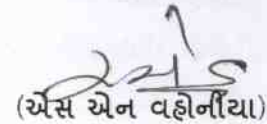 (એસ એન વહોનીયા)